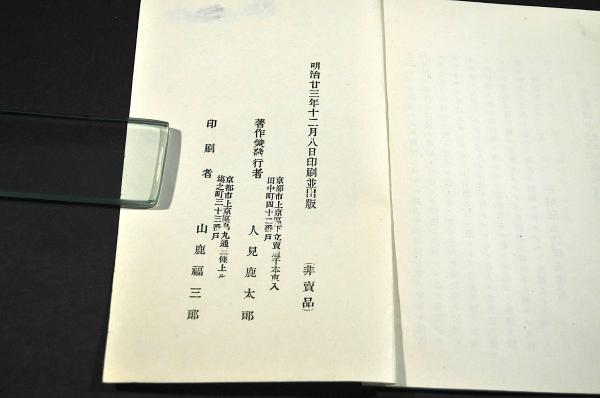 明治廿三年十二月八日印刷並出版
(非賣品)
京都市上京區下立賣通千本東入
田中町四十二番戶
著作兼發行者
人見鹿太郎
京都市上京區烏丸通二條上ル
塲之町三十三番戶
印刷者
山鹿福三郎